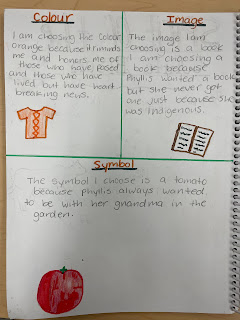 Colour
I am choosing the colour
orange because it reminds
me and honors me of
those who have passed
and those who have
lived but have heart
breaking news.
Image
The image I am
choosing is a book
I am choosing a
book because
Phyllis wanted a book
but she never got
one just because she
was Indigenous.
Symbol
The symbol I choose is a tomato
because phyllis always wanted
to be with her grandma in the
garden.